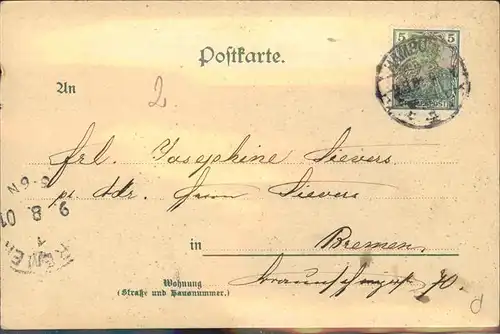 Postkarte.
5
HAMBURG
An
2
Frl. Josephine Sievers
pr. Adr. Herrn Sievers
in Bremen.
Wohnung
(Straße und Hausnummer.)
70.
BREMEN
1
9.8.01
5-6N
d